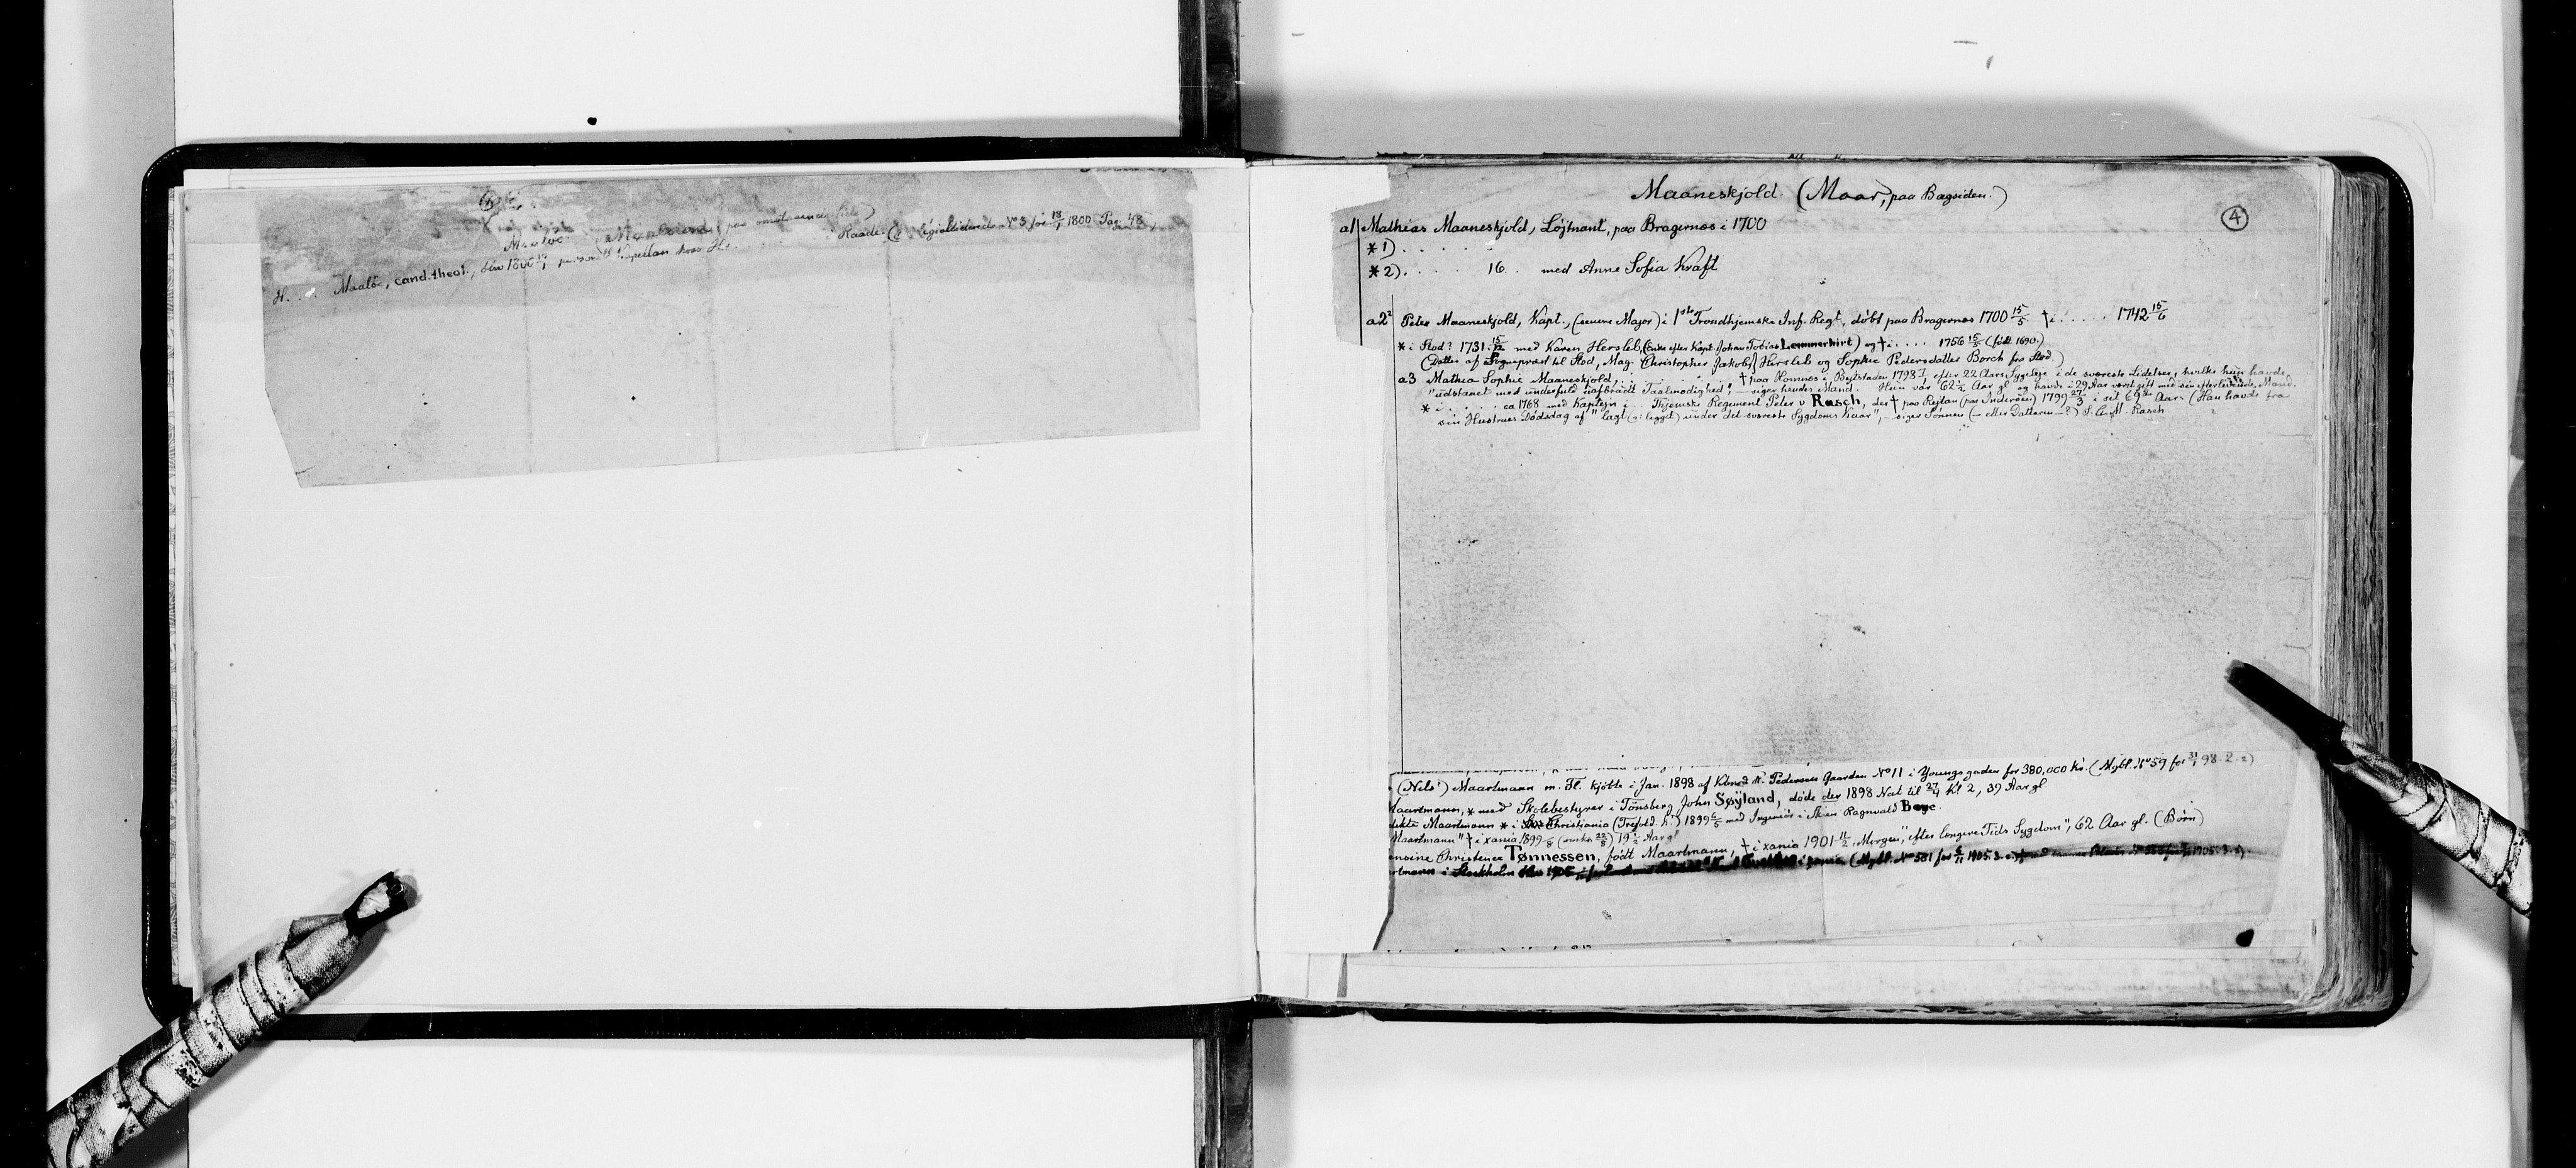 Maaløe. (Maartmann, paa omstaaende Side)
H. . . . Maaløe, cand. theol., blev 1800 17/1 personel Kapellan hos Hr. . . . . . . Raade. (Kollegialtidende No 3 for 18/1 1800 Pag. 48)
Maaneskjold. (Maar, paa Bagsiden.)
4
a1 Mathias Maaneskjold, Løjtnant, paa Bragernæs i 1700
* 1) . . . .
* 2) . . . . 16 . . med Anne Sofia Kraft
a2² Peter Maaneskjold, Kapt., (senere Major) i 1ste Trondhjemske Inf. Regt, døbt paa Bragernæs 1700 15/5 † i . . . . . 1742 15/6
* i Stod? 1731 15/12 med Karen Hersleb, (Enke efter Kapt. Johan Tobias Lemmerhirt) og † i . . . . 1756 15/5 (født 1690.)
(Datter af Sognepræst til Stod, Mag. Christopher Jakobs. Hersleb og Sophie Pedersdatter Borch fra Stod.)
a3 Mathea Sophie Maaneskjold, . . . . † paa Homnes i Bejtstaden 1798 1/1 efter 22 Aars Sygeleje i de sværeste Lidelser, hvilke hun havde
"udstanet med underfuld uafbrudt Taalmodighed", – siger hendes Mand. Hun var 62½ Aar gl. og havde i 29 Aar været gift med sin efterlevende Mand.
* i . . . . . ca 1768 med Kaptejn i . . Thjemske Regiment Peter v Rasch, der † paa Rejtan (paa Inderøen) 1799 27/3 i sit 69de Aar. (Han havde fra
sin Hustrues Dødsdag af "lagt (ɔ: ligget) under det sværeste Sygdoms Kaar", – siger Sønnen (– eller Datteren –?) S. C. M. Rasch
(Nils?) Maartmann m. Fl. kjøbte i Jan. 1898 af Kbmd N. Pedersen Gaarden No 11 i Youngsgaden for 380,000 Kr. (Mgbl. No 59 for 31/1 98. 2. 2)
Maartmann, * med Skolebestyrer i Tønsberg John Søyland, døde der 1898 Nat til 27/4 Kl 2, 39 Aar gl
dikte Maartmann * i Christiania (Trefold. K.) 1899 6/5 med Ingeniør i Skien Ragnvald Bøye.
Maartmann" † i xania 1899 /8 (omkr 22/8) 19½ Aar gl
ensine Christence Tønnessen, født Maartmann, † i xania 1901 11/2, Morgen, "efter længere Tids Sygdom", 62 Aar gl. (Børn)
rtmann i Stockholm blev 1905 i xania (Mgbl. No 581 for 6/11 1905. 3. 1905. 3. 5)